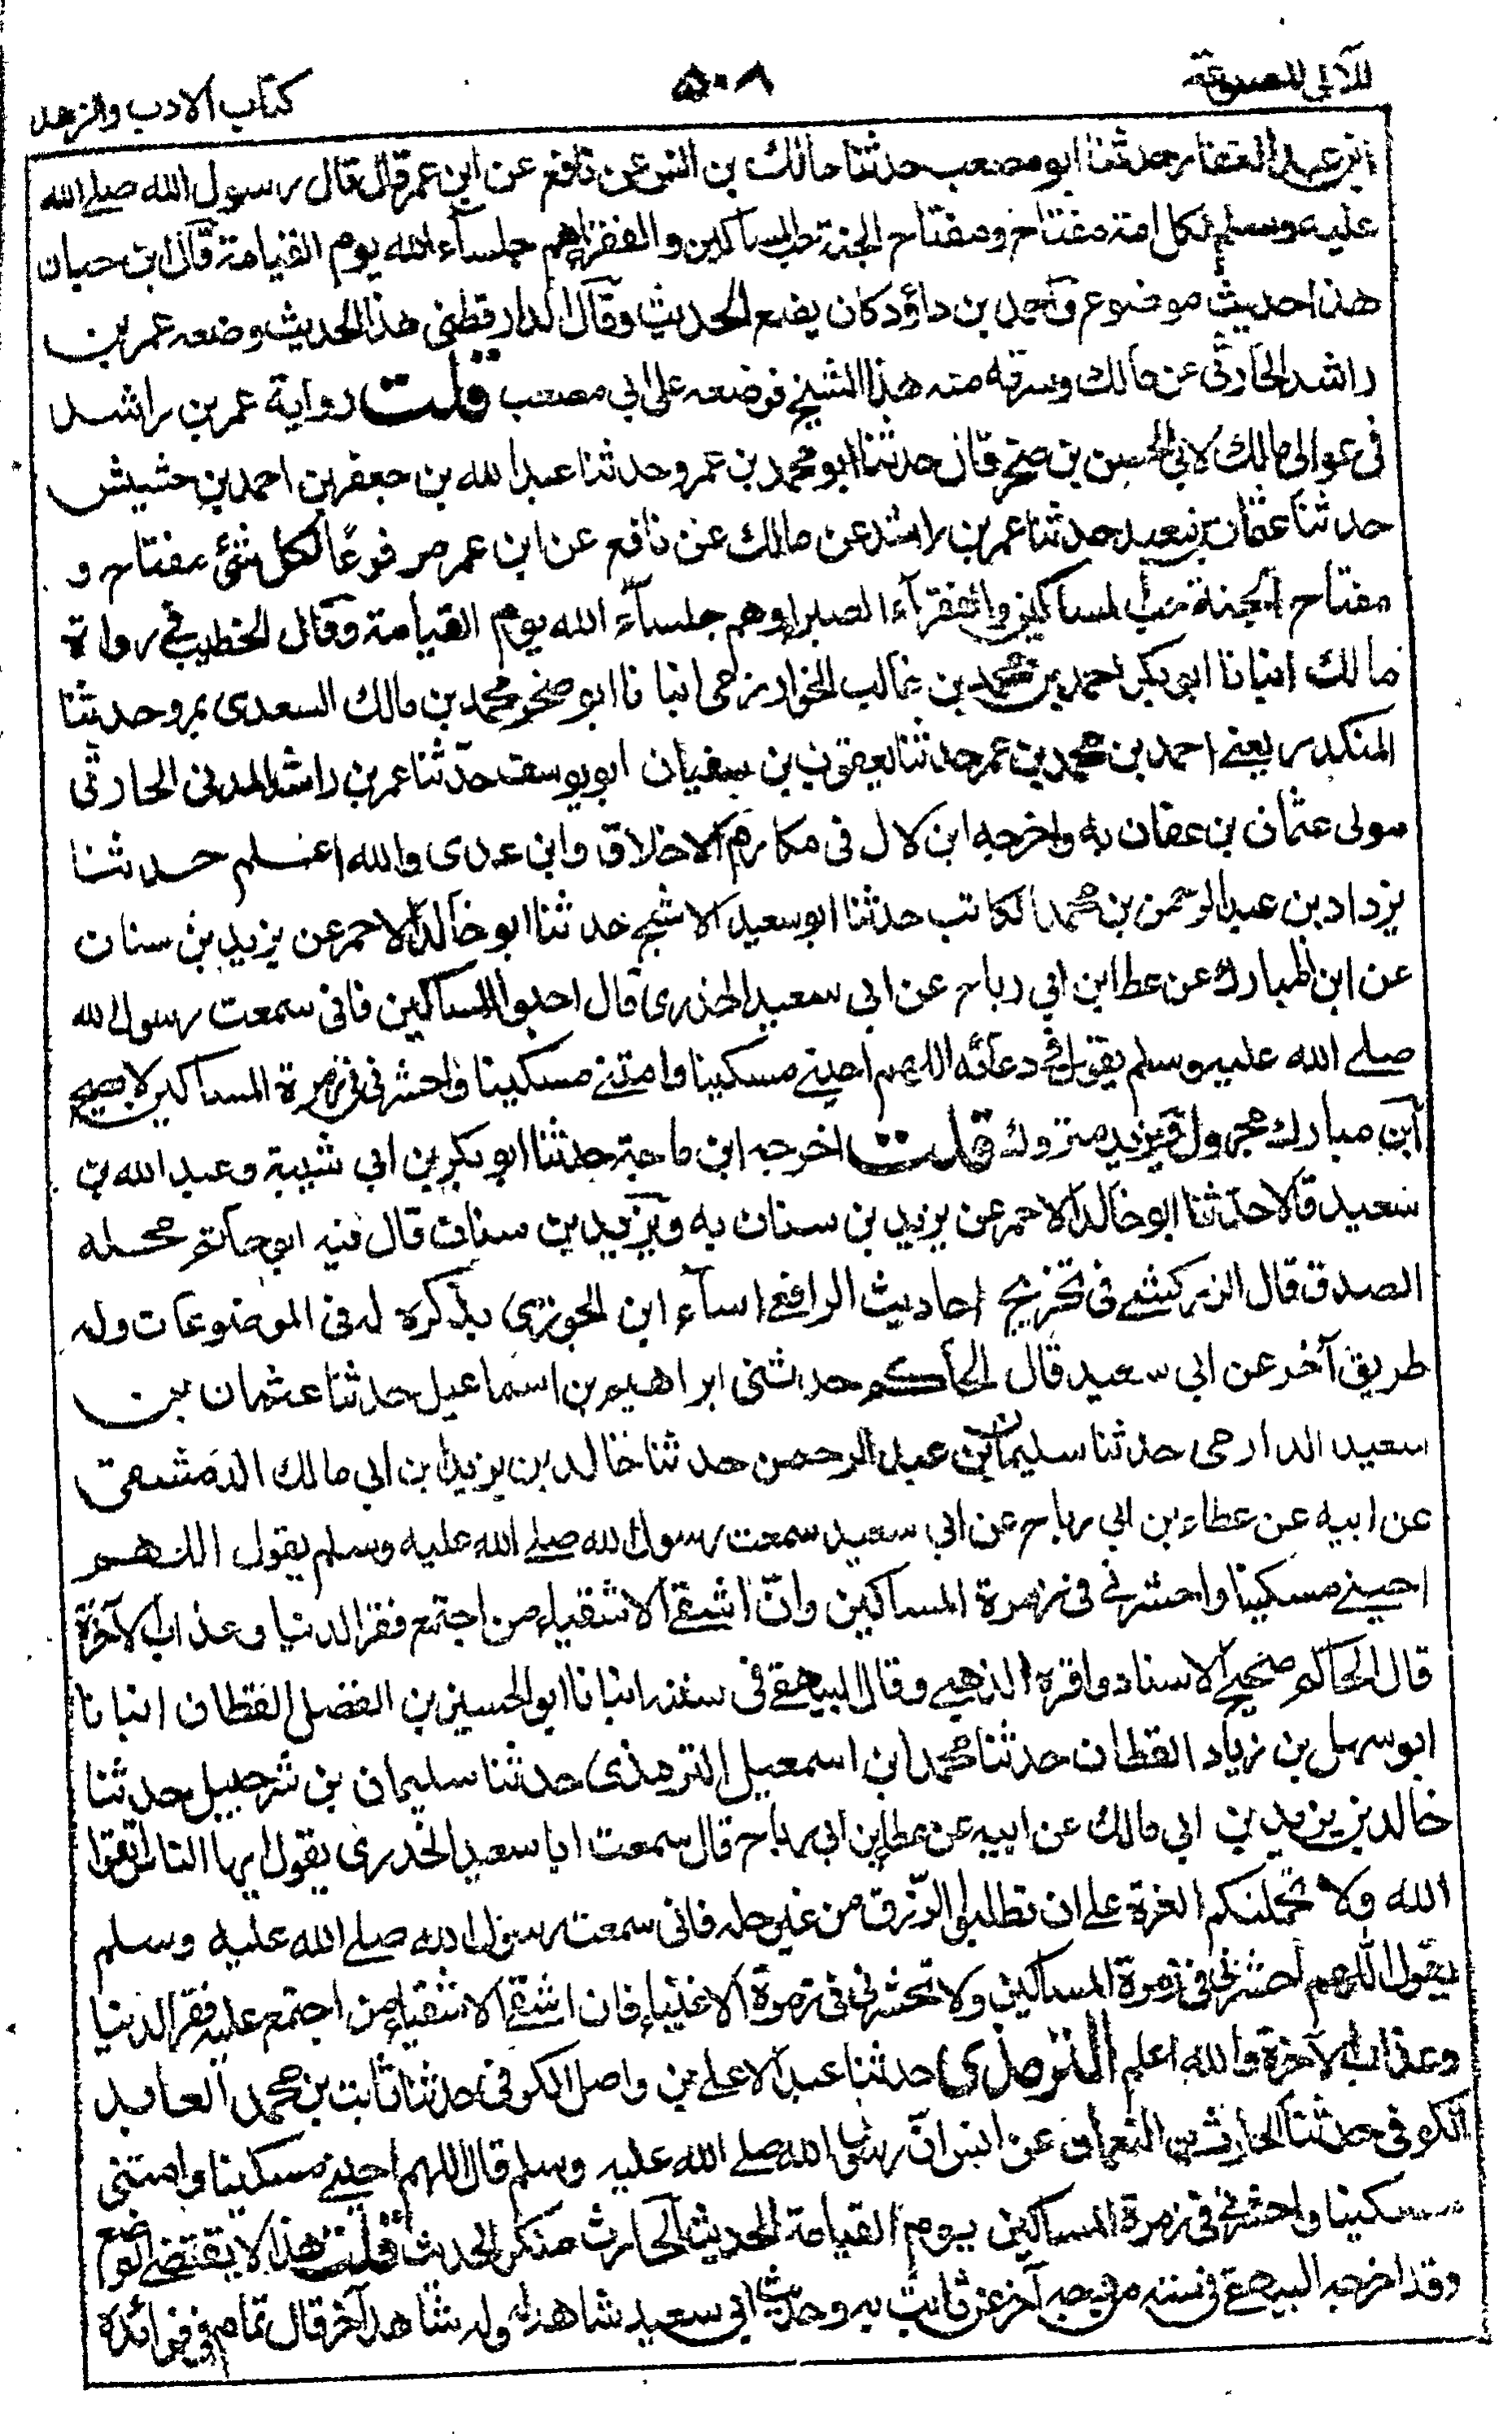 اللآلى المصنوعة
٥٠٨
كتاب الادب والزهد
ابن عبد الغفار حدثنا ابو مصعب حدثنا مالك بن انس عن نافع عن ابن عمر قال قال رسول الله صلے الله
عليه وسلم لكل امة مفتاح ومفتاح الجنة حب المساكين والفقراء هم جلساء الله يوم القيامة قال ابن حبان
هذا حديث موضوع واحمد بن داؤد كان يضع الحديث وقال الدارقطنى هذا الحديث وضعه عمر بن
راشد الحارثى عن مالك وسرقه منه هذا الشيخ فوضعه على ابى مصعب قلت رواية عمر بن راشد
فى عوالى مالك لابى الحسين بن صخر قال حدثنا ابو محمد بن عمر وحدثنا عبد الله بن جعفر بن احمد بن خشيش
حدثنا عثمان بن سعيد حدثنا عمر بن راشد عن مالك عن نافع عن ابن عمر مرفوعًا لكل شئ مفتاح و
مفتاح الجنة حب المساكين والفقرآء الصبر وهم جلسآء الله يوم القيامة وقال الخطيب فے رواة
مالك انبانا ابو بكر احمد بن محمد بن غالب الخوارزمى انبانا ابو صخر محمد بن مالك السعدى بمرو حدثنا
المنكدر يعنے احمد بن محمد بن عمر حدثنا يعقوب بن سفيان ابو يوسف حدثنا عمر بن راشد المدنى الحارثى
مولى عثمان بن عفان به واخرجه ابن لال فى مكارم الاخلاق وابن عدى والله اعلم حدثنا
يزداد بن عبد الرحمن بن محمد الكاتب حدثنا ابو سعيد الاشج حدثنا ابو خالد الاحمر عن يزيد بن سنان
عن ابن المبارك عن عطا ابن ابى رباح عن ابى سعيد الخدرى قال احبوا المساكين فانى سمعت رسول الله
صلے الله عليه وسلم يقول فے دعائه اللهم احينے مسكينا وامتنے مسكينا واحشرنى فى زمرة المساكين لا يصح
ابن مبارك مجهول ويزيد متروك قلت اخرجه ابن ماجة حدثنا ابو بكر بن ابى شيبة وعبد الله بن
سعيد قالا حدثنا ابو خالد الاحمر عن يزيد بن سنان به ويزيد بن سنان قال فيه ابو حاتم محله
الصدق قال الزركشے فى تخريج احاديث الرافعے اسآء ابن الجوزى بذكره له فى الموضوعات وله
طريق آخر عن ابى سعيد قال الحاكم حدثنى ابراهيم بن اسماعيل حدثنا عثمان بن
سعيد الدارمى حدثنا سليمان بن عبد الرحمن حدثنا خالد بن يزيد ابن ابى مالك الدمشقى
عن ابيه عن عطاء بن ابى رباح عن ابى سعيد سمعت رسول الله صلے الله عليه وسلم يقول اللهم
احينے مسكينا واحشرنے فى زمرة المساكين وانّ اشقے الاشقياء من اجتمع فقر الدنيا وعذاب الآخرة
قال الحاكم صحيح الاسناد واقره الذهبے وقال البيهقے فى سننه انبانا ابو الحسين بن الفضل القطان انبانا
ابو سهل بن زياد القطان حدثنا محمد ابن اسمعيل الترمذى حدثنا سليمان بن شرحبيل حدثنا
خالد بن يزيد بن ابى مالك عن ابيه عن عطا بن ابى رباح قال سمعت ابا سعيد الخدرى يقول ايها الناس اتقوا
الله ولا تحملنكم العزة علے ان تطلبوا الرزق من غير حله فانى سمعت رسول الله صلے الله عليه وسلم
يقول اللهم احشرنى فى زمرة المساكين ولا تحشرنى فى زمرة الاغنياء فان اشقے الاشقياء من اجتمع عليه فقر الدنيا
وعذاب الآخرة والله اعلم الترمذى حدثنا عبد الاعلے بن واصل الكوفى حدثنا ثابت بن محمد العابد
الكوفى حدثنا الحارث بن النعمان عن انس انّ رسول الله صلے الله عليه وسلم قال اللهم احينے مسكينا وامتنى
مسكينا واحشرنے فى زمرة المساكين يوم القيامة الحديث الحارث منكر الحديث قلت هذا لا يقتضے الوضع
وقد اخرجه البيهقے فى سننه من وجه آخر عن ثابت به وحديث ابى سعيد شاهد له وله شاهد آخر قال تمام فى فوائده